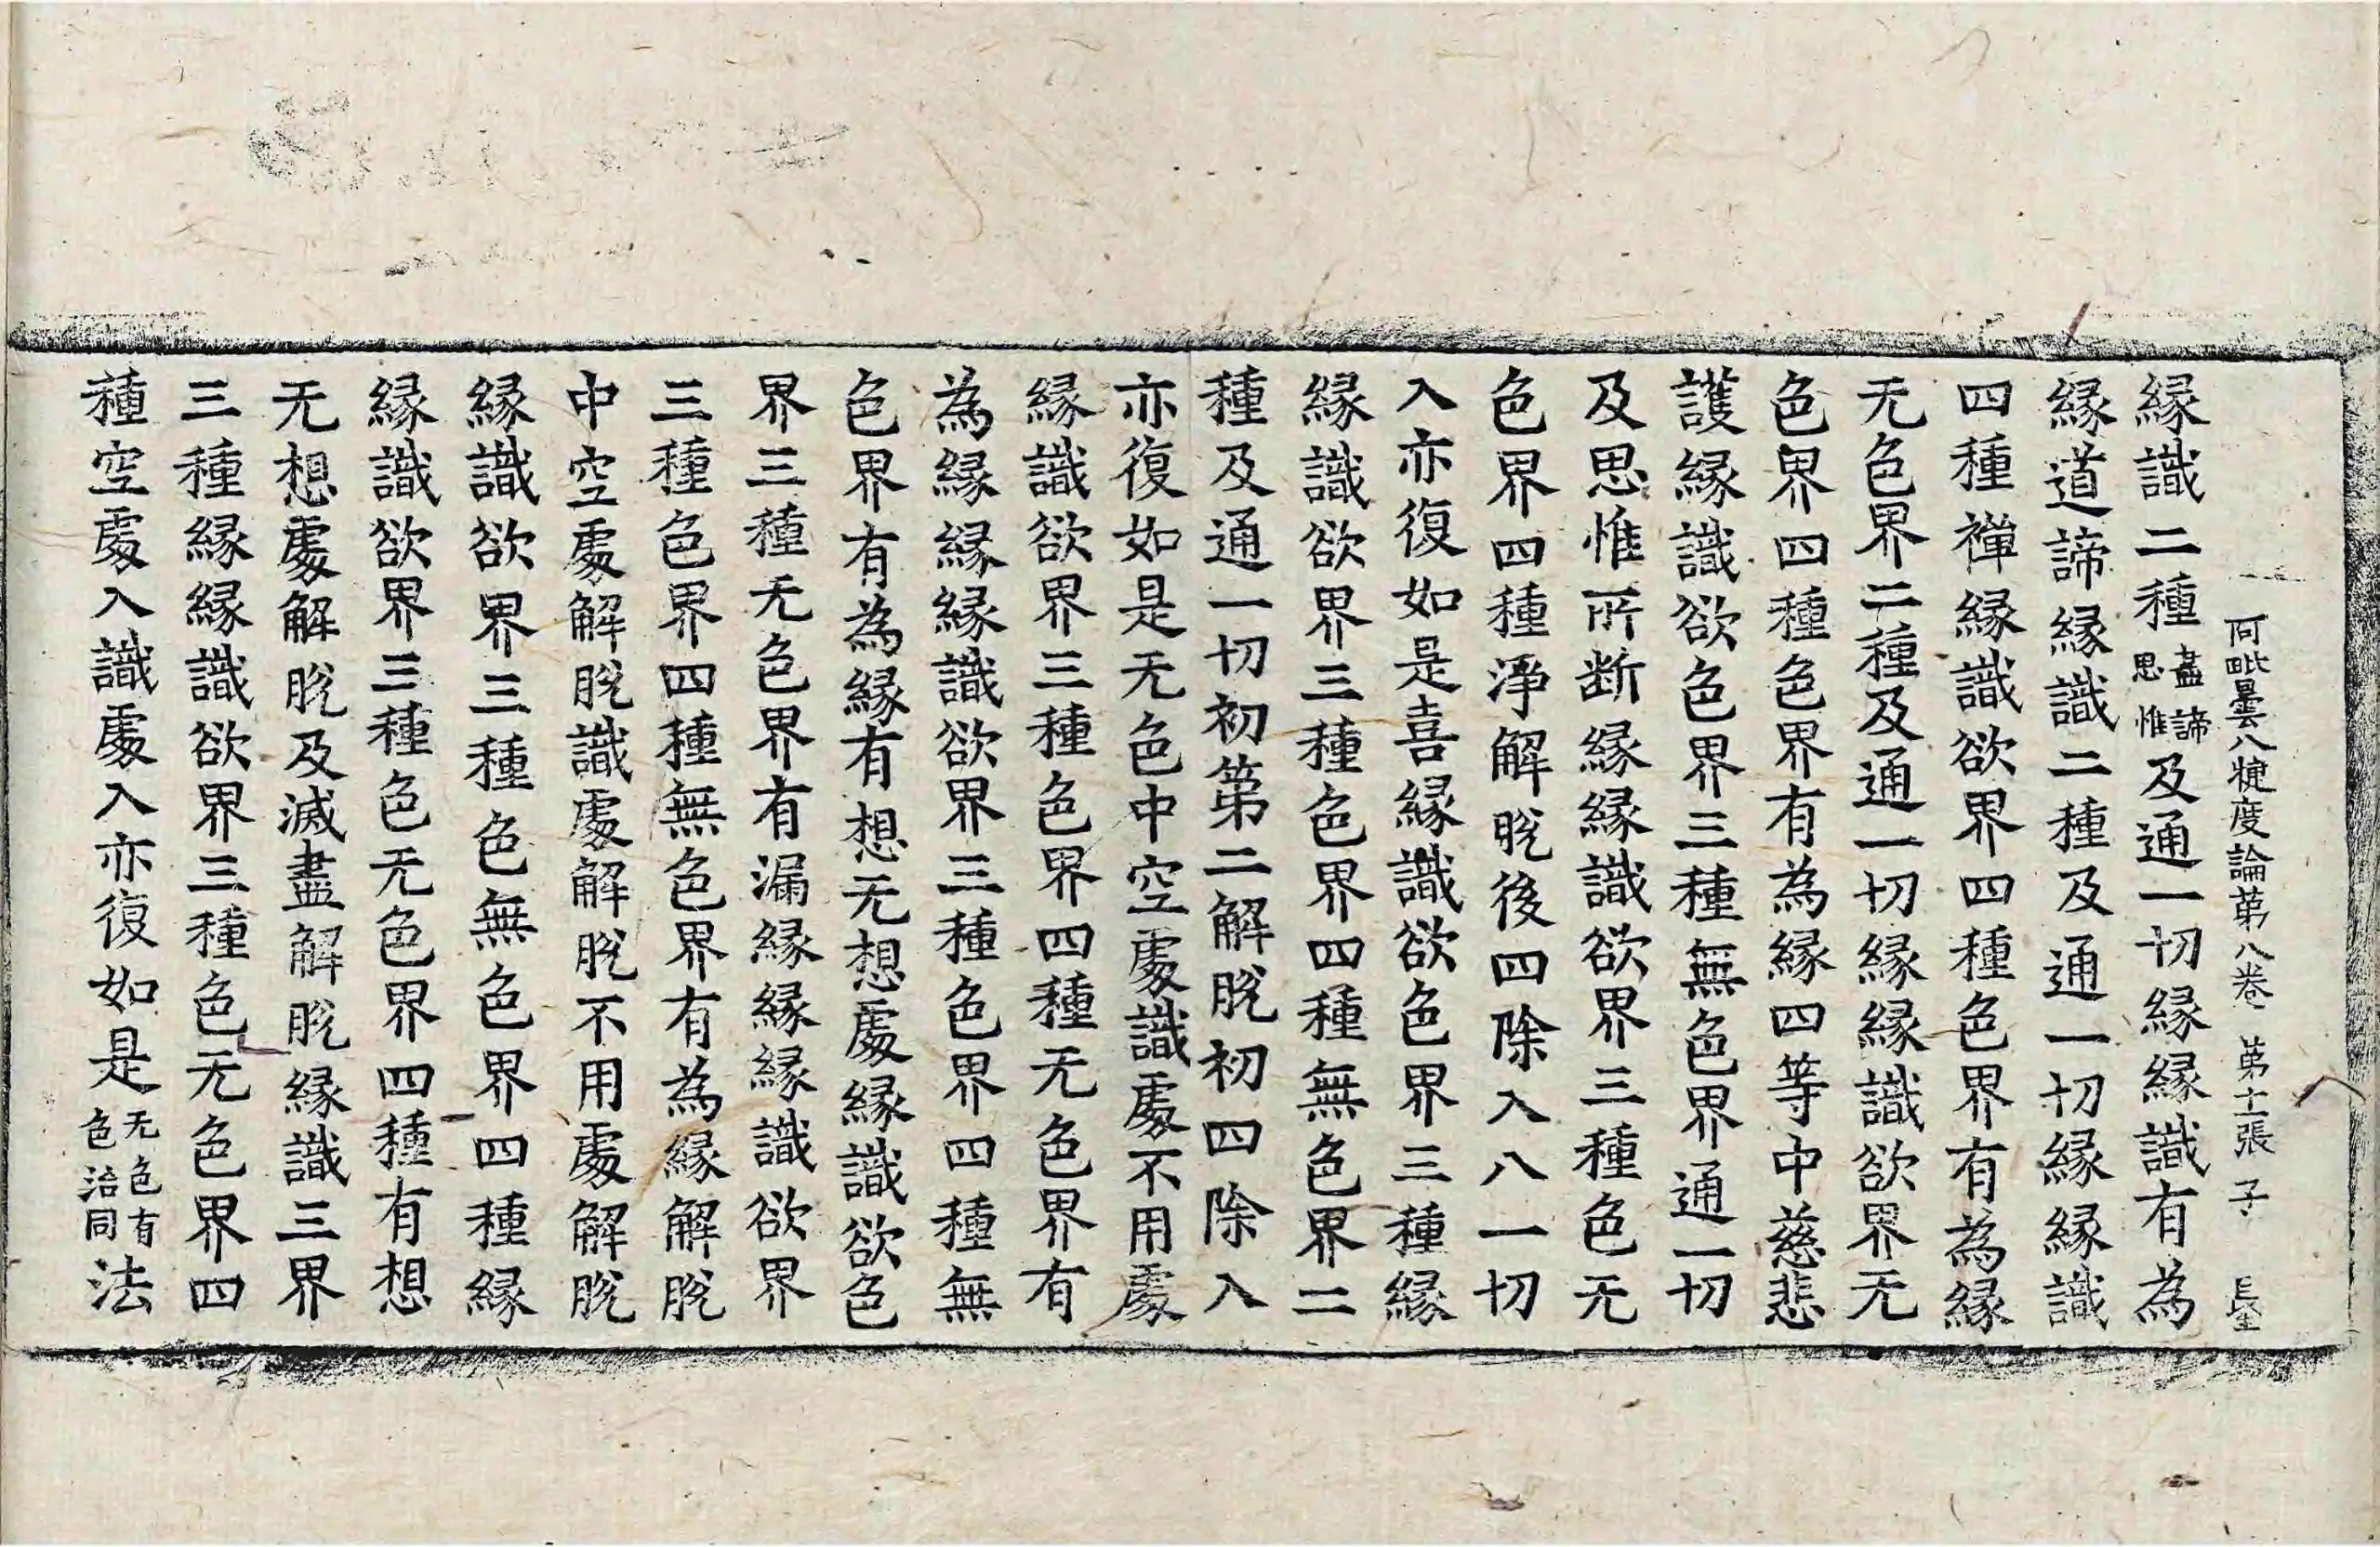 阿毗曇八犍度論苐八卷 苐十二張 子
縁識二種盡諦思惟及通一切縁縁識有為
縁道諦縁識二種及通一切縁縁識
四種禪縁識欲界四種色界有為縁
无色界二種及通一切縁縁識欲界无
色界四種色界有為縁四等中慈悲
護縁識欲色界三種無色界通一切
及思惟所断縁縁識欲界三種色无
色界四種淨解脫後四除入八一切
入亦復如是喜縁識欲色界三種縁
縁識欲界三種色界四種無色界二
種及通一切初苐二解脫初四除入
亦復如是无色中空處識處不用處
縁識欲界三種色界四種无色界有
為縁縁縁識欲界三種色界四種無
色界有為縁有想无想處縁識欲色
界三種无色界有漏縁縁縁識欲界
三種色界四種無色界有為縁解脫
中空處解脫識處解脫不用處解脫
縁識欲界三種色無色界四種縁
縁識欲界三種色无色界四種有想
无想處解脫及滅盡解脫縁識三界
三種縁縁識欲界三種色无色界四
種空處入識處入亦復如是无色有色治同法